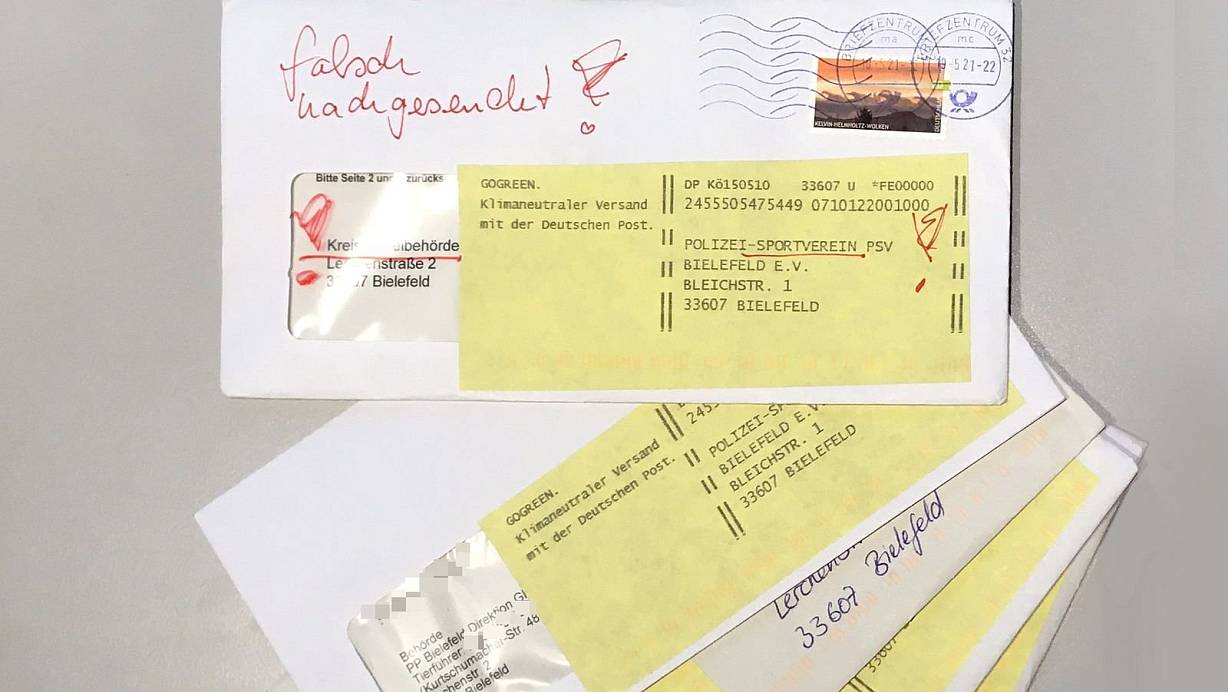 falsch
nachgesendet
BRIEFZENTRUM
ma
BRIEFZENTRUM 32
mc
9-5.21-22
KELVIN-HELMHOLTZ-WOLKEN
Bitte Seite 2 und zurücks
Lerchenstraße 2
Bielefeld
GOGREEN.
Klimaneutraler Versand
mit der Deutschen Post.
DP Kö150510 33607 U *FE00000
2455505475449 0710122001000
POLIZEI-SPORTVEREIN PSV
BIELEFELD E.V.
BLEICHSTR. 1
33607 BIELEFELD
GOGREEN.
Klimaneutraler Versand
mit der Deutschen Post.
2455
POLIZEI-SPO
BIELEFELD E.V.
BLEICHSTR. 1
33607 BIELEFELD
Behörde
PP Bielefeld Direktion
Tierführer
/Kurtschumacher-Str. 48
chenstr. 2
Bielefeld
Lerchen
33607 Bielefeld
33607